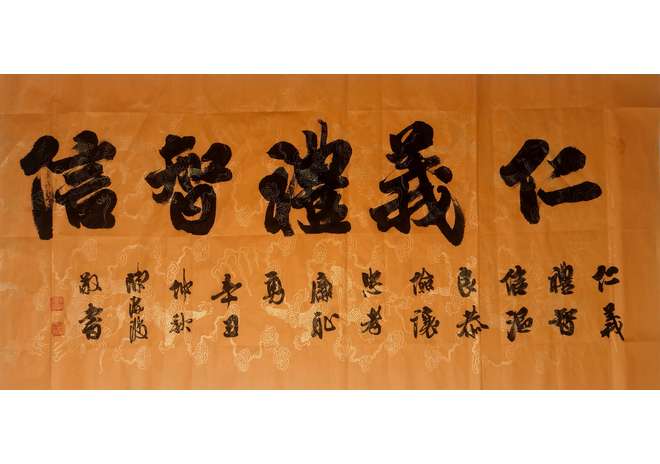 仁義禮智信
仁義
禮智
信溫
良恭
儉讓
忠孝
廉恥
勇
辛丑
仲秋
敬書